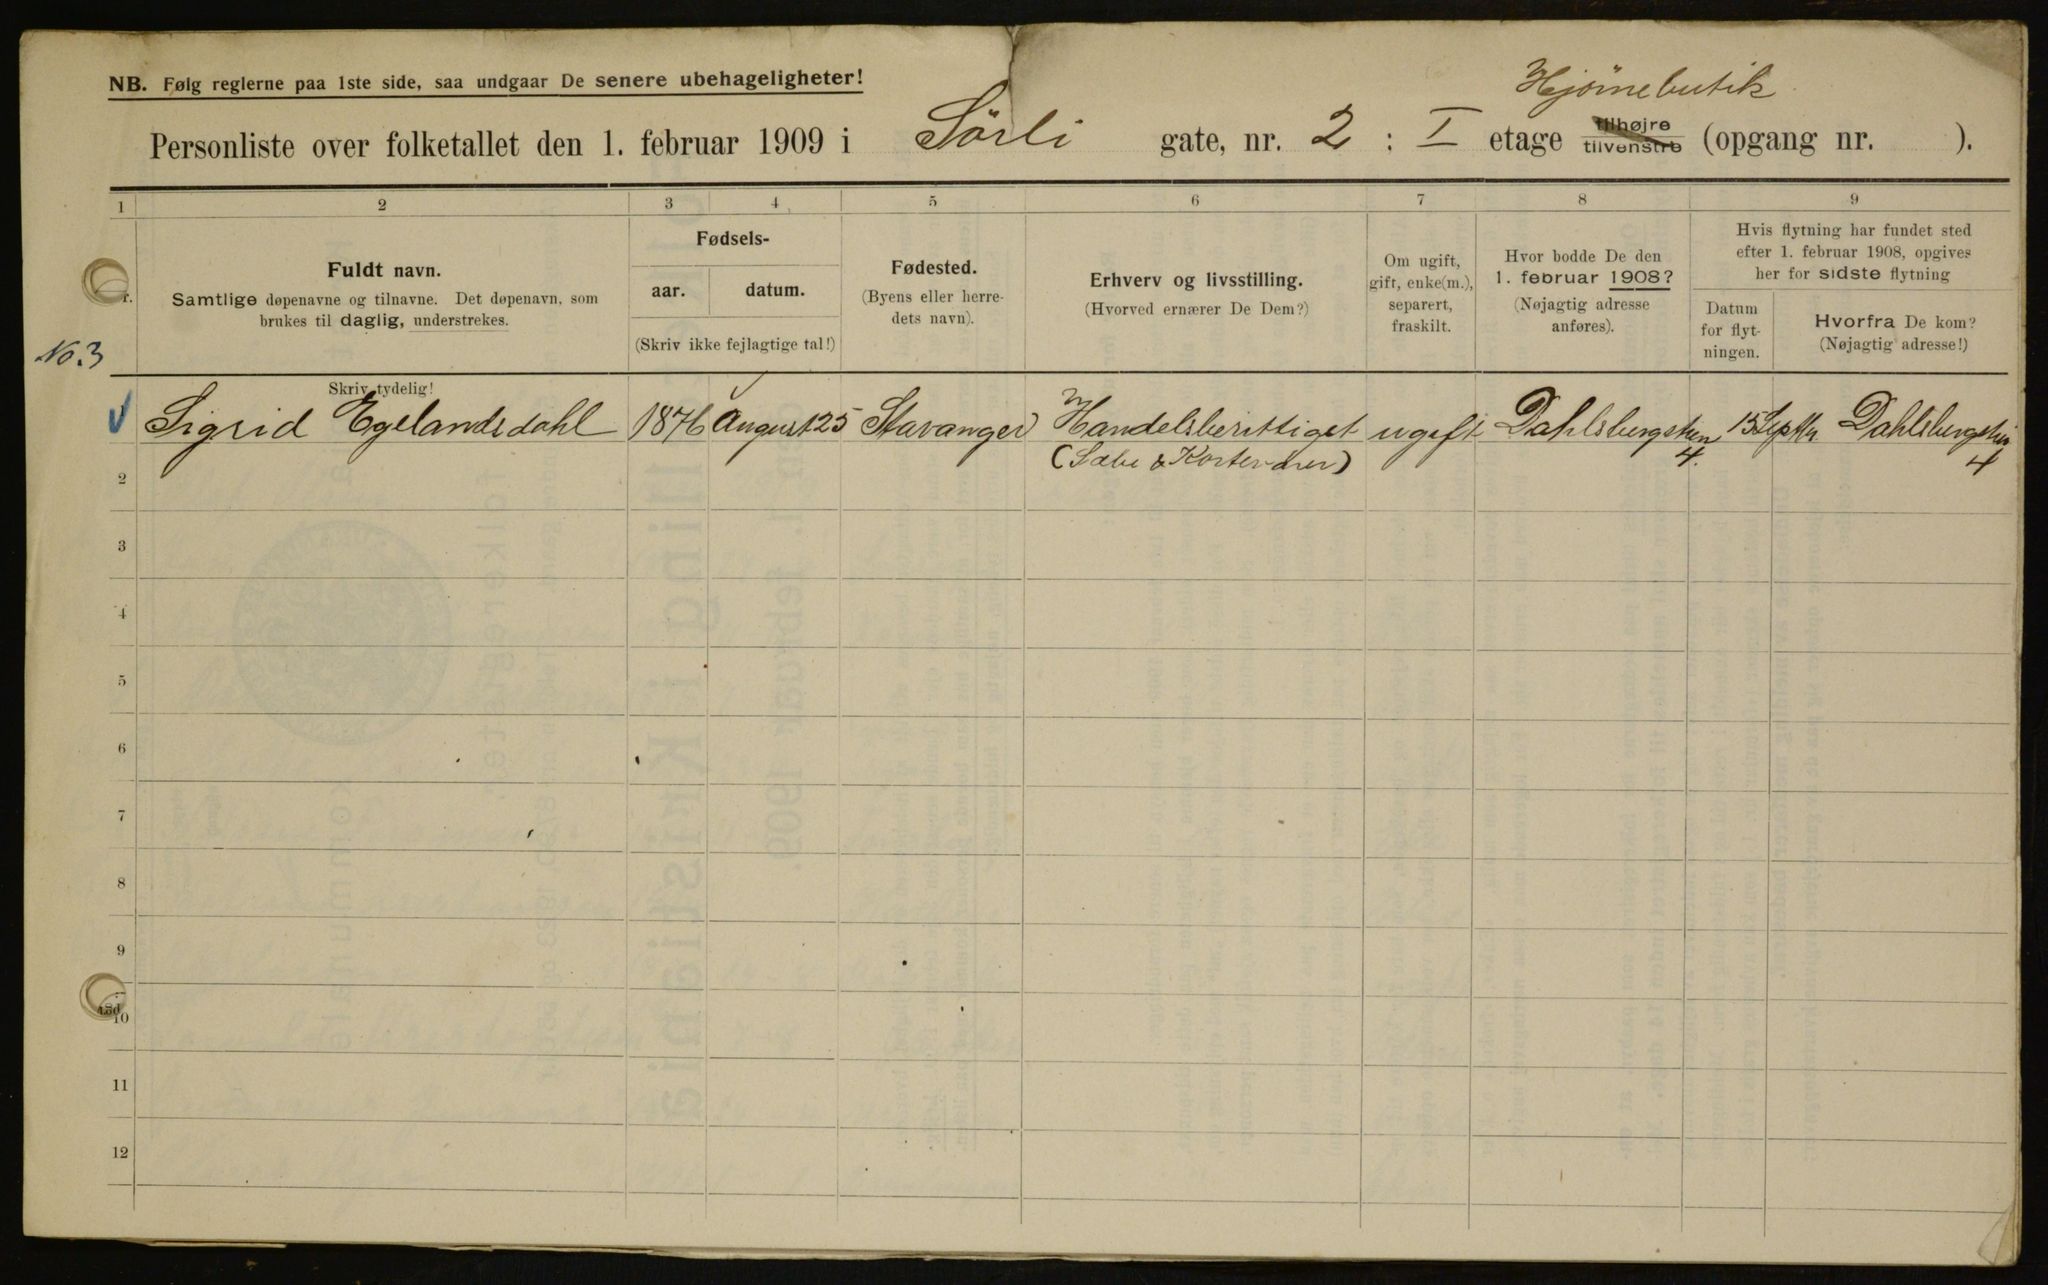 NB. Følg reglerne paa 1ste side, saa undgaar De senere ubehageligheter!
Hjørnebutik
Personliste over folketallet den 1. februar 1909 i Sörli gate, nr. 2 : I etage tilhøjre tilvenstre (opgang nr. ).
1 2 3 4 5 6 7 8 9
Fuldt navn.
Samtlige døpenavne og tilnavne. Det døpenavn, som
brukes til daglig, understrekes.
Skriv tydelig!
Fødsels-
aar. datum.
(Skriv ikke fejlagtige tal!)
Fødested.
(Byens eller herre-
dets navn).
Erhverv og livsstilling.
(Hvorved ernærer De Dem?)
Om ugift,
gift, enke(m.),
separert,
fraskilt.
Hvor bodde De den
1. februar 1908?
(Nøjagtig adresse
anføres).
Hvis flytning har fundet sted
efter 1. februar 1908, opgives
her for sidste flytning
Datum
for flyt-
ningen.
Hvorfra De kom?
(Nøjagtig adresse!)
No. 3
Sigrid Egelandsdahl 1876 August 25 Stavanger Handelsberettiget ugift Dahlsbergstien 4. 15 Septbr Dahlsbergstien 4
2
3
4
5
6
7
8
9
10
11
12